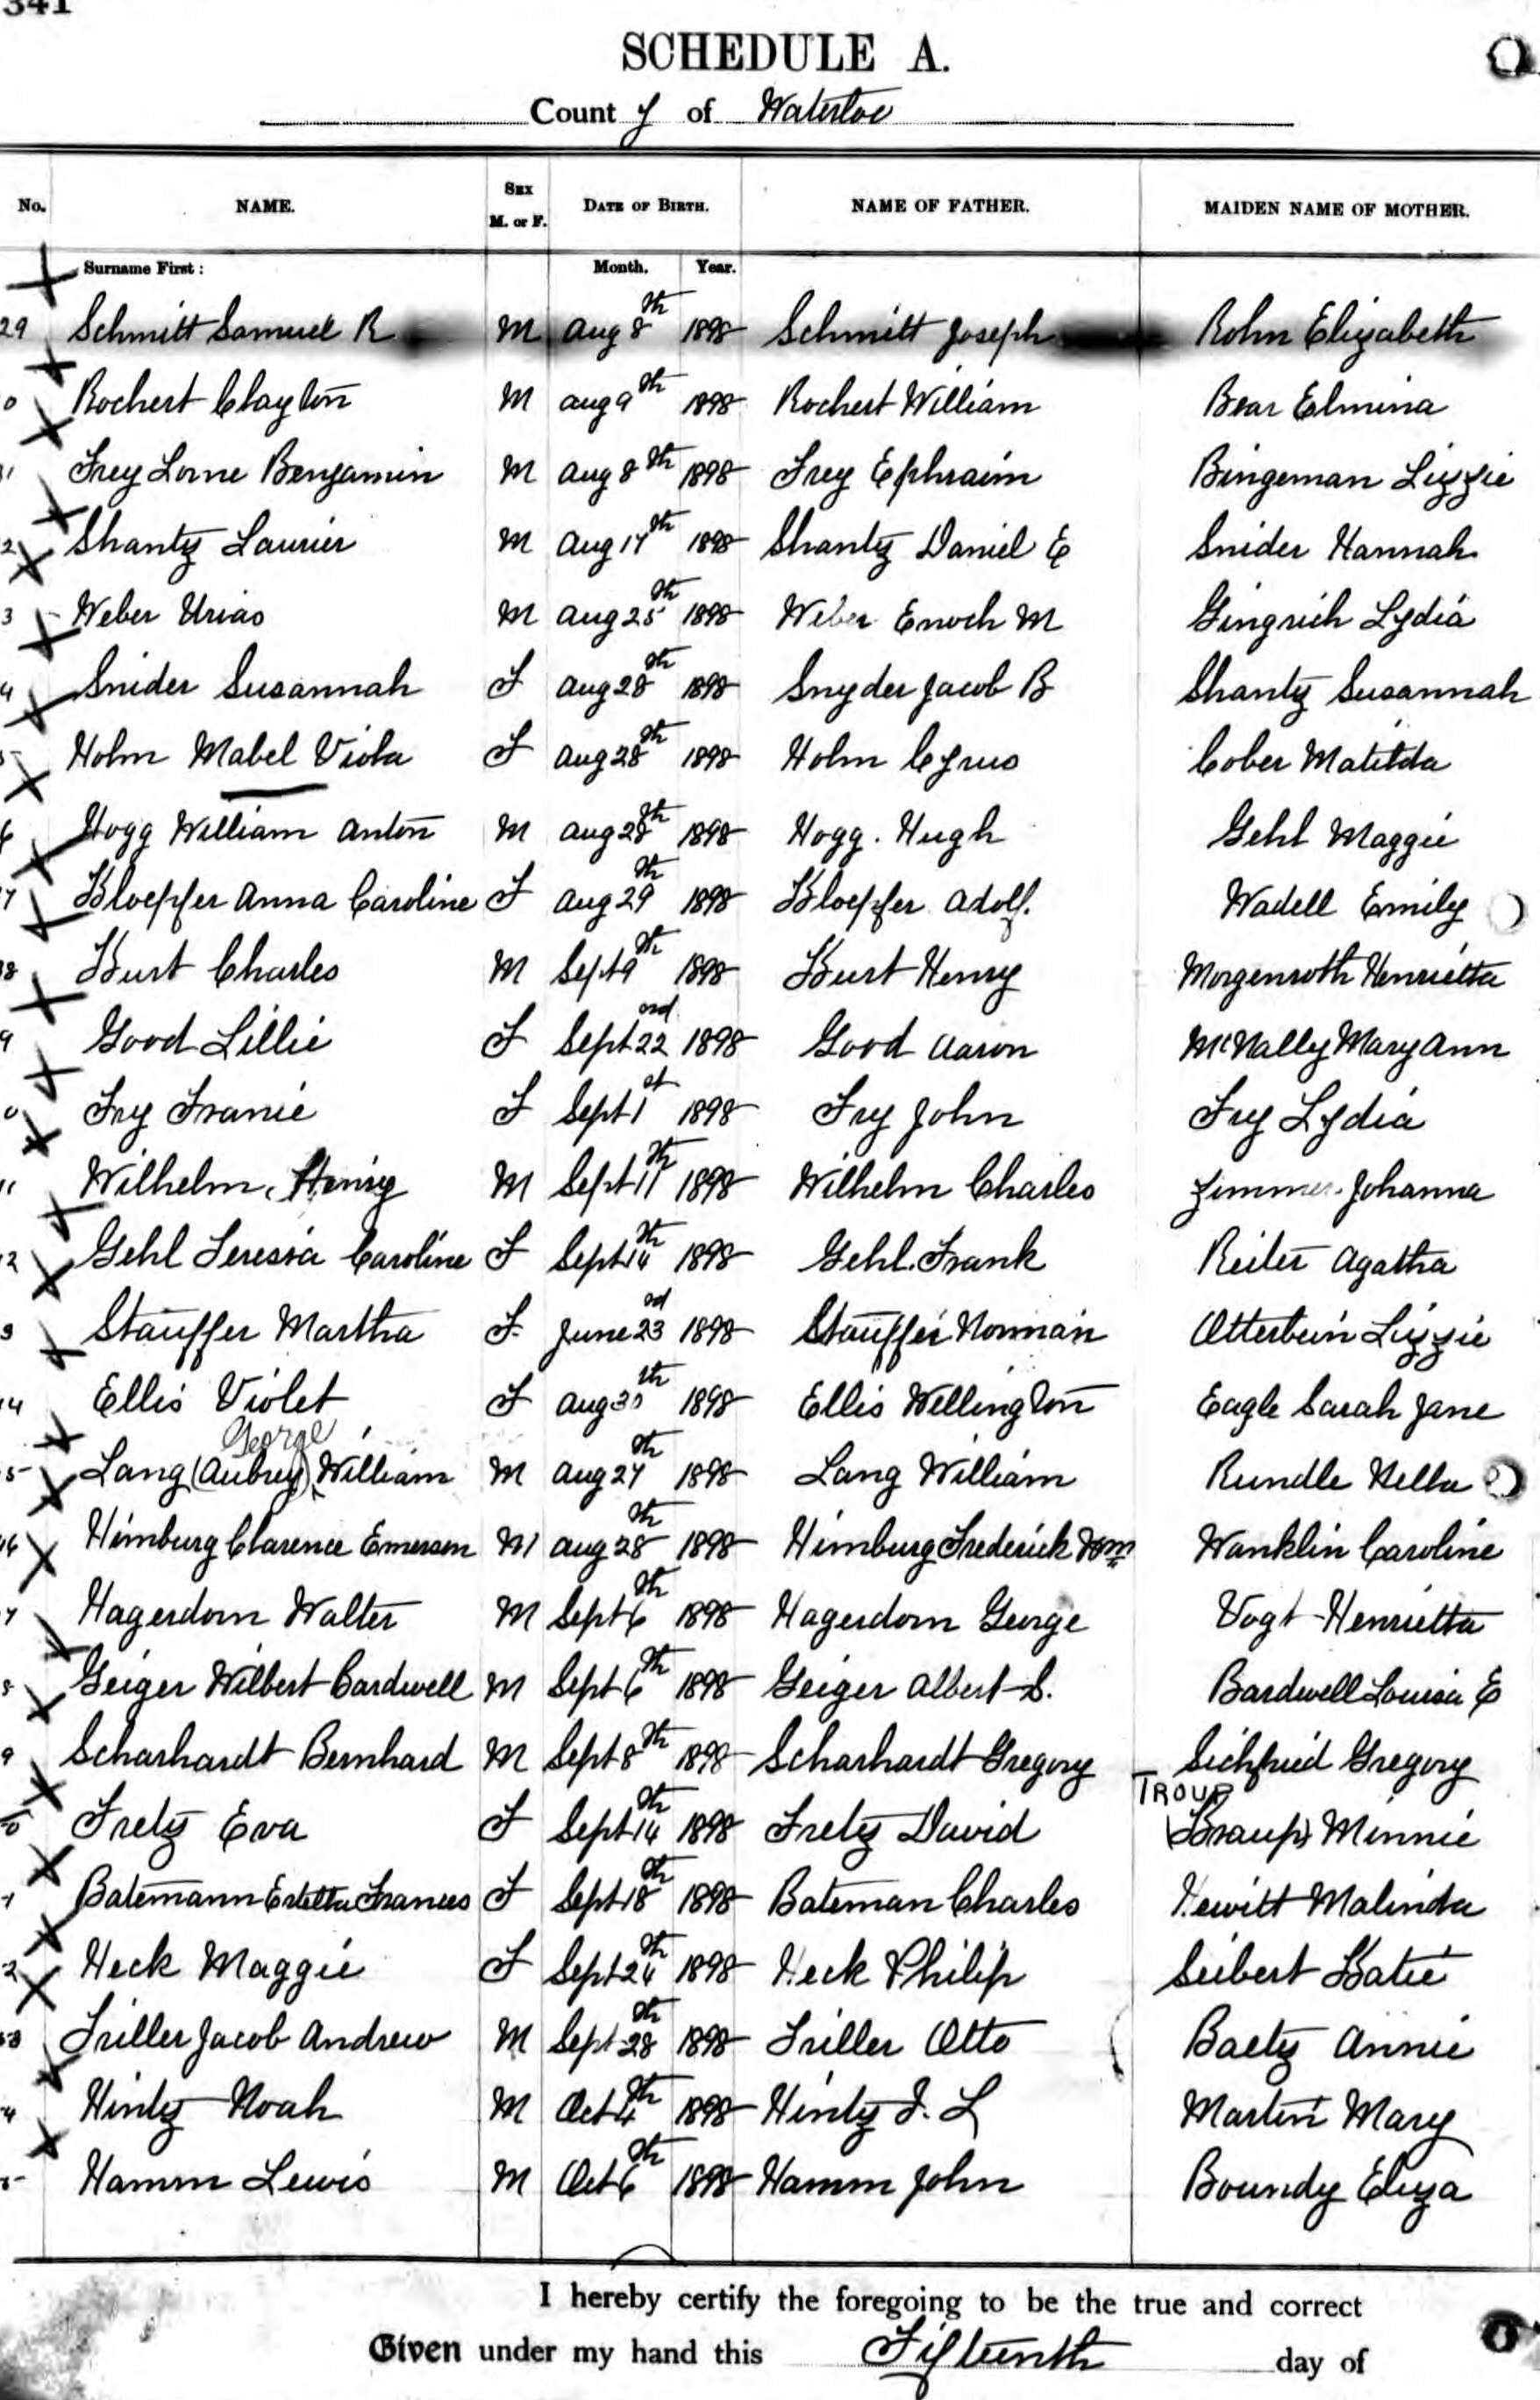 341
SCHEDULE A.
County of Waterloo
No. NAME. SEX M. or F. DATE OF BIRTH. NAME OF FATHER. MAIDEN NAME OF MOTHER.
Surname First: Month. Year.
29 Schmitt Samuel R M Aug 8th 1898 Schmitt Joseph Rohn Elizabeth
0 Rochert Clayton M Aug 9th 1898 Rochert William Bear Elmina
1 Frey Lorne Benjamin M Aug 8th 1898 Frey Ephraim Bingeman Lizzie
2 Shantz Laurier M Aug 17th 1898 Shantz Daniel E Snider Hannah
3 Weber Urias M Aug 25th 1898 Weber Enoch M Gingrich Lydia
4 Snider Susannah F Aug 28th 1898 Snyder Jacob B Shantz Susannah
5 Holm Mabel Viola F Aug 28th 1898 Holm Cyrus Cober Matilda
6 Hogg William Anton M Aug 28th 1898 Hogg. Hugh Gehl Maggie
7 Kloepfer Anna Caroline F Aug 29th 1898 Kloepfer Adolf. Wadell Emily
38 Kurt Charles M Sept 9th 1898 Kurt Henry Morgenroth Henrietta
9 Good Lillie F Sept 22nd 1898 Good Aaron McNally Mary Ann
0 Fry Franie F Sept 1st 1898 Fry John Fry Lydia
11 Wilhelm, Henry M Sept 11th 1898 Wilhelm Charles Zimmer Johanna
12 Gehl Teressa Caroline F Sept 14th 1898 Gehl. Frank Reiter Agatha
3 Stauffer Martha F. June 23rd 1898 Stauffer Norman Otterbein Lizzie
14 Ellis Violet F Aug 30th 1898 Ellis Wellington Eagle Sarah Jane
George
5 Lang (Aubrey) William M Aug 27th 1898 Lang William Rundle Nella
46 Himburg Clarence Emerson M Aug 28th 1898 Himburg Frederick Wm Wanklin Caroline
7 Hagerdorn Walter M Sept 6th 1898 Hagerdorn George Vogt Henrietta
8 Geiger Wilbert Cardwell M Sept 6th 1898 Geiger Albert S. Bardwell Louisa E
9 Scharhardt Bernhard M Sept 8th 1898 Scharhardt Gregory Sichfried Gregory
TROUP
0 Fretz Eva F Sept 14th 1898 Fretz David (Kraup) Minnie
1 Batemann Estella Frances F Sept 18th 1898 Bateman Charles Hewitt Malinda
2 Heck Maggie F Sept 24th 1898 Heck Philip Seibert Katie
53 Triller Jacob Andrew M Sept 28th 1898 Triller Otto Baetz Annie
4 Hintz Noah M Oct 4th 1898 Hintz J. L Martin Mary
5 Hamm Lewis M Oct 6th 1898 Hamm John Boundy Eliza
I hereby certify the foregoing to be the true and correct
Given under my hand this Fifteenth day of